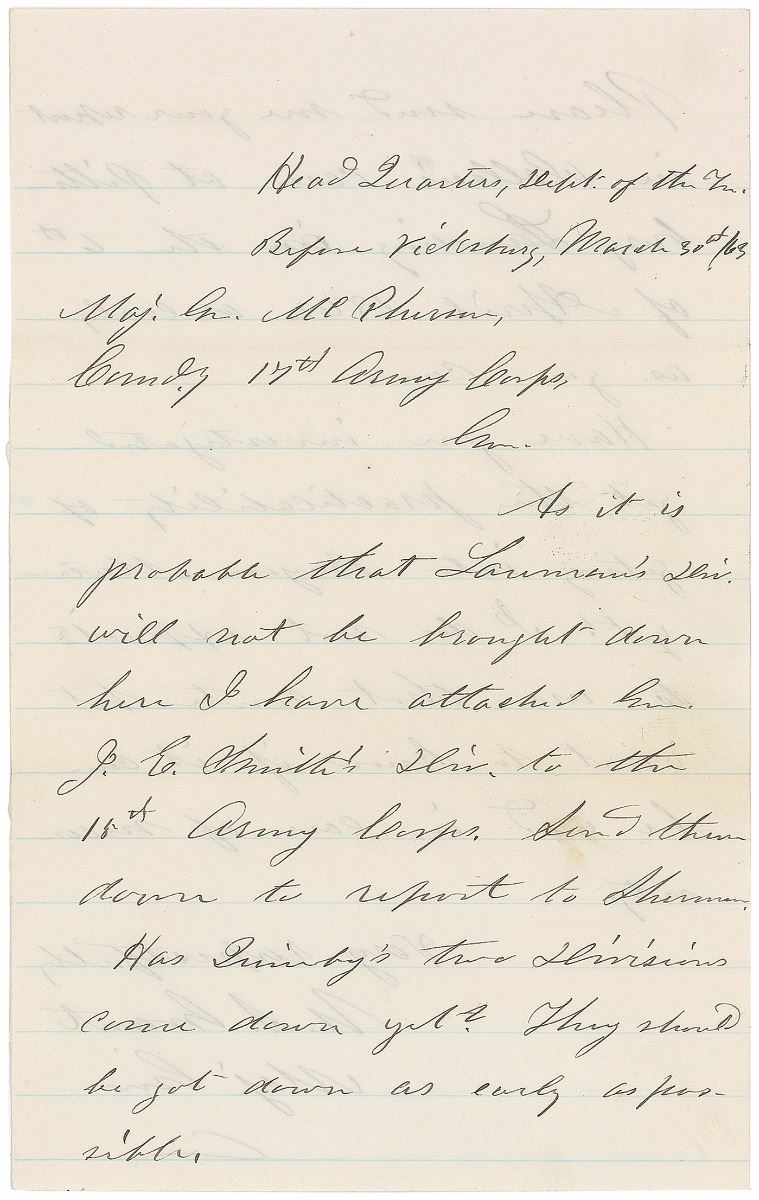 Head Quarters, Dept. of the Tn.
Before Vicksburg, March 30th/63
Maj. Gn. McPherson,
Comd.g 17th Army Corps,
Gen.
As it is
probable that Lauman's Div.
will not be brought down
here I have attached Gen.
J. E. Smith's Div. to the
15th Army Corps. Send them
down to report to Sherman.
Has Quimby's two Divisions
come down yet? They should
be got down as early as pos-
sible.